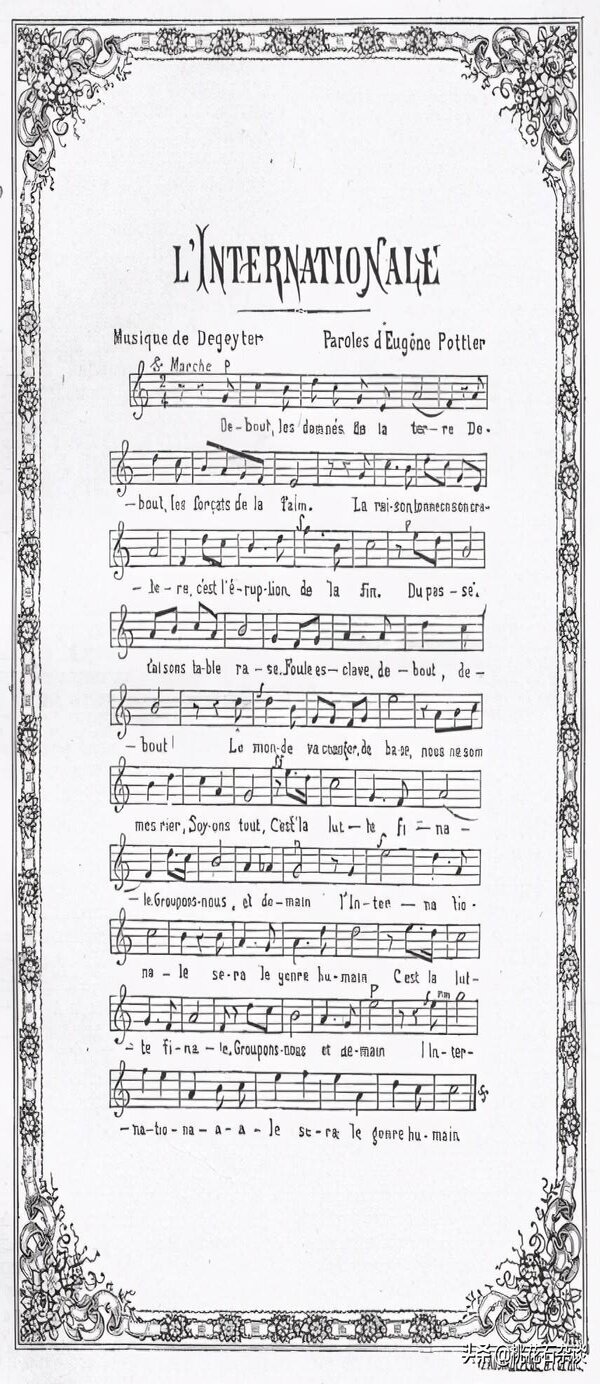 L'INTERNATIONALE
Musique de Degeyter Paroles d'Eugène Pottier
Marche P
De-bout, les damnés de la ter-re De-
-bout, les forçats de la faim. La rai-son tonne en son cra-
-te-re, c'est l'é-rup-tion de la fin. Du pas-sé.
faisons ta-ble ra-se. Foule es-clave, de-bout, de-
-bout! Le mon-de va changer, de ba-se, nous ne som
mes rier, Soy-ons tout, C'est la lut-te fi-na-
-le. Groupons-nous, et de-main l'In-ter-na tio-
na-le se-ra le genre hu-main C'est la lut-
-te fi-na-le, Groupons-nous et de-main l In-ter-
-na-tio-na-a-a-le se-ra le genre hu-main
头条@桃花石杂谈